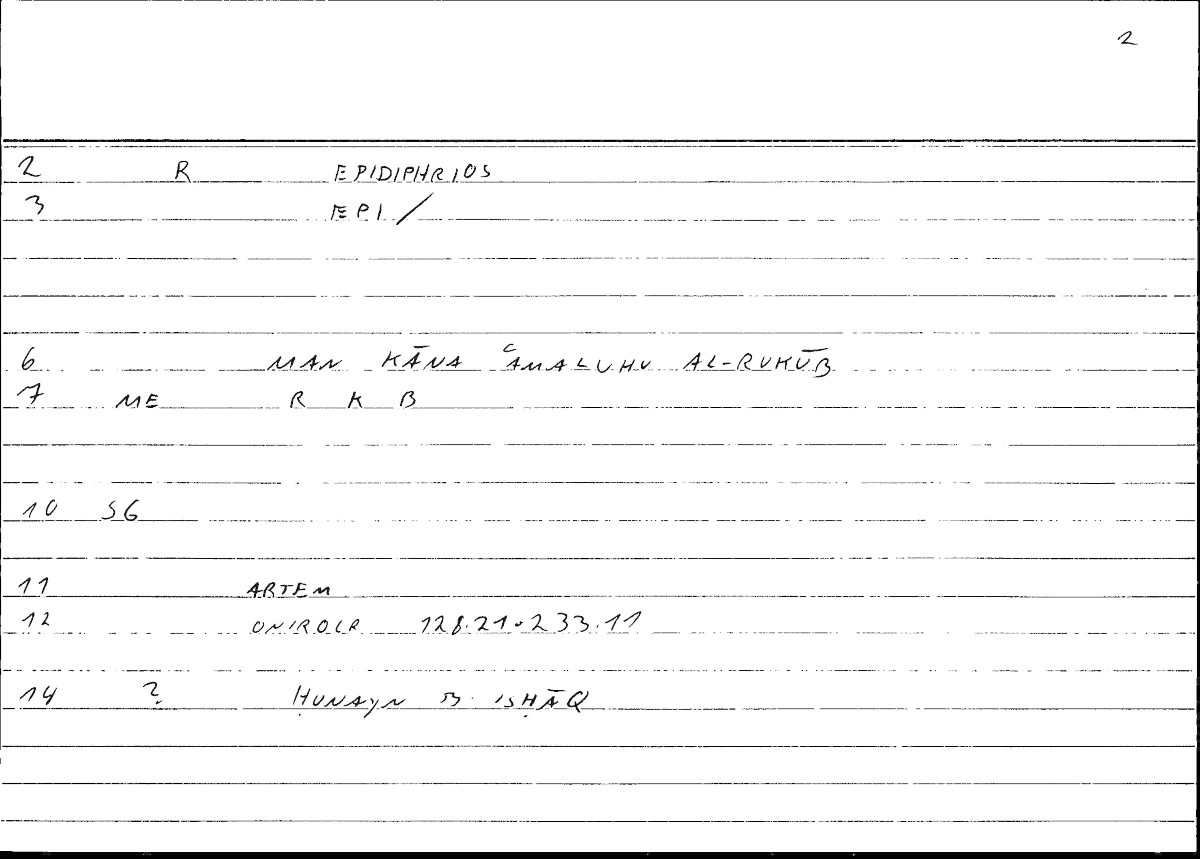 2
2 R EPIDIPHRIOS
3 EPI/
6 MAN KĀNA ʿAMALUHU AL-RUKŪB
7 ME R K B
10 SG
11 ARTEM
12 ONIROCR 128.21.233.11
14 ? ḤUNAYN B. ISḤĀQ